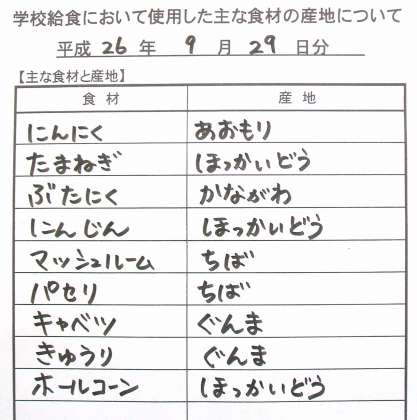 学校給食において使用した主な食材の産地について
平成 26 年 9 月 29 日分
【主な食材と産地】
食材 産地
にんにく あおもり
たまねぎ ほっかいどう
ぶたにく かながわ
にんじん ほっかいどう
マッシュルーム ちば
パセリ ちば
キャベツ ぐんま
きゅうり ぐんま
ホールコーン ほっかいどう